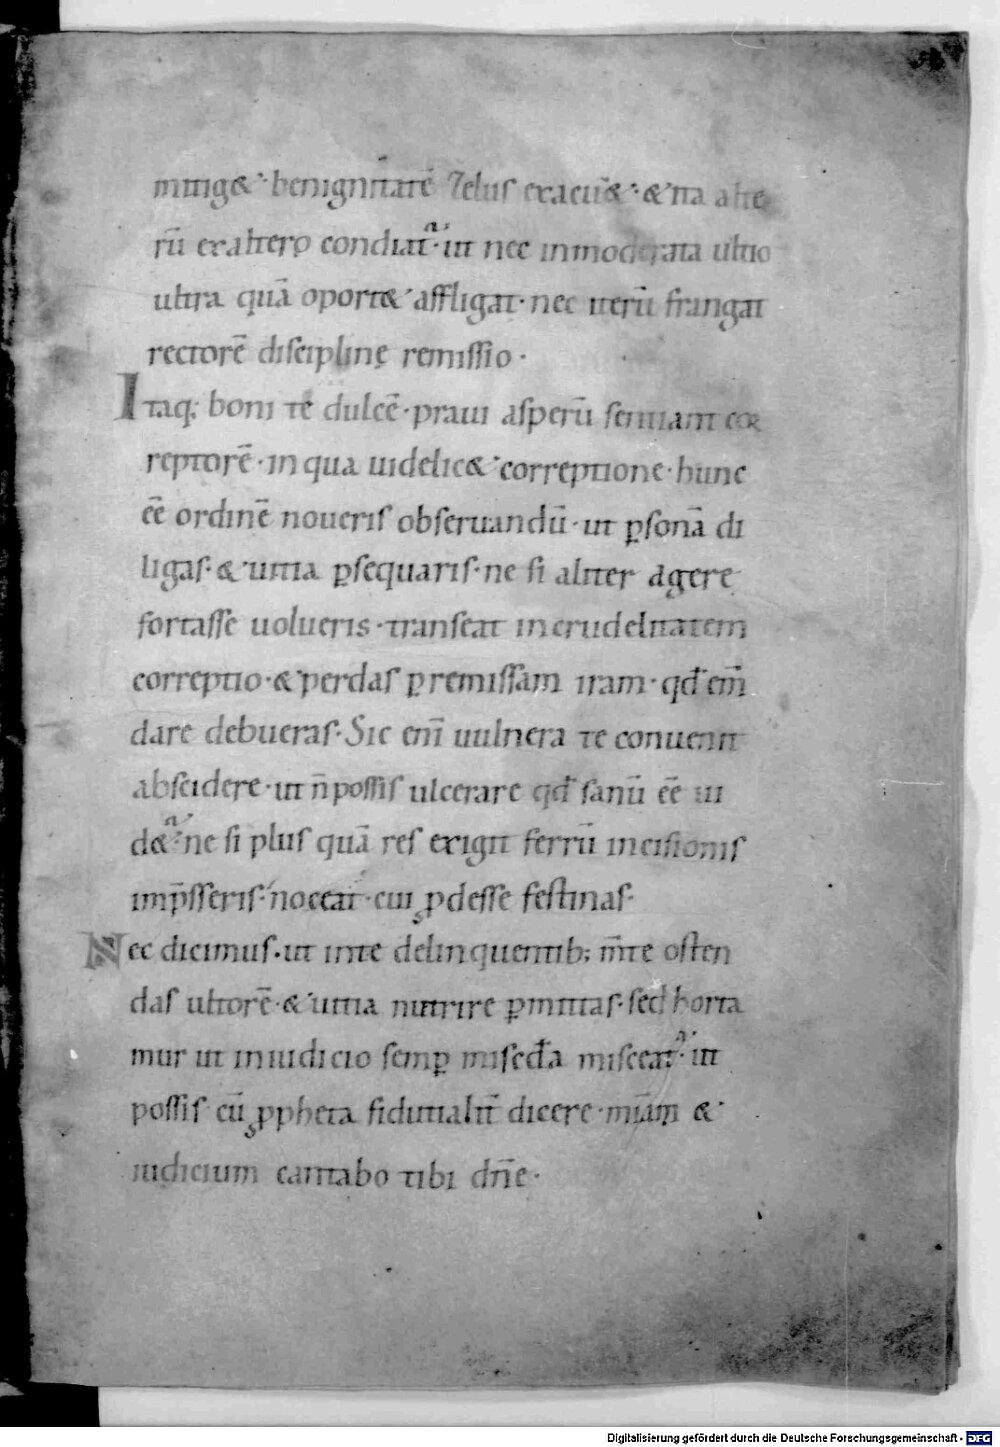 mitig&· benignitatē Zelus exacu&·· &ita alte
rū exaltero condiat᷑· ut nec inmoderata ultio
ultra quā oport& affligat· nec iterū frangat
rectorē disciplinę remissio·
Itaq; boni te dulcē· praui asperū sentiant cor
reptorē· in qua uidelic& correptione· hunc
ēē ordinē noueris obseruandū· ut ꝑsonā di
ligas· & uitia ꝑsequaris· ne si aliter agere
fortasse uolueris· transeat in crudelitatem
correptio· & perdas ꝑ remissam iram· qđ em̄
dare debueras· Sic enī uulnera te conuenit
abscidere· ut n̄ possis ulcerare qđ sanū ēē ui
d&· ne si plus quā res exigit ferrū incisionis
imp̄sseris· noceat· cui ꝓdesse festinas·
Nec dicimus· ut inte delinquentib; m̄te osten
das ultorē· & uitia nutrire ꝑmittas· sed horta
mur ut iniudicio semꝑ misc̄dia misceat᷑· ut
possis cū ꝓpheta fidutialit̄ dicere· mīam &
iudicium cantabo tibi dn̄e·
Digitalisierung gefördert durch die Deutsche Forschungsgemeinschaft - DFG